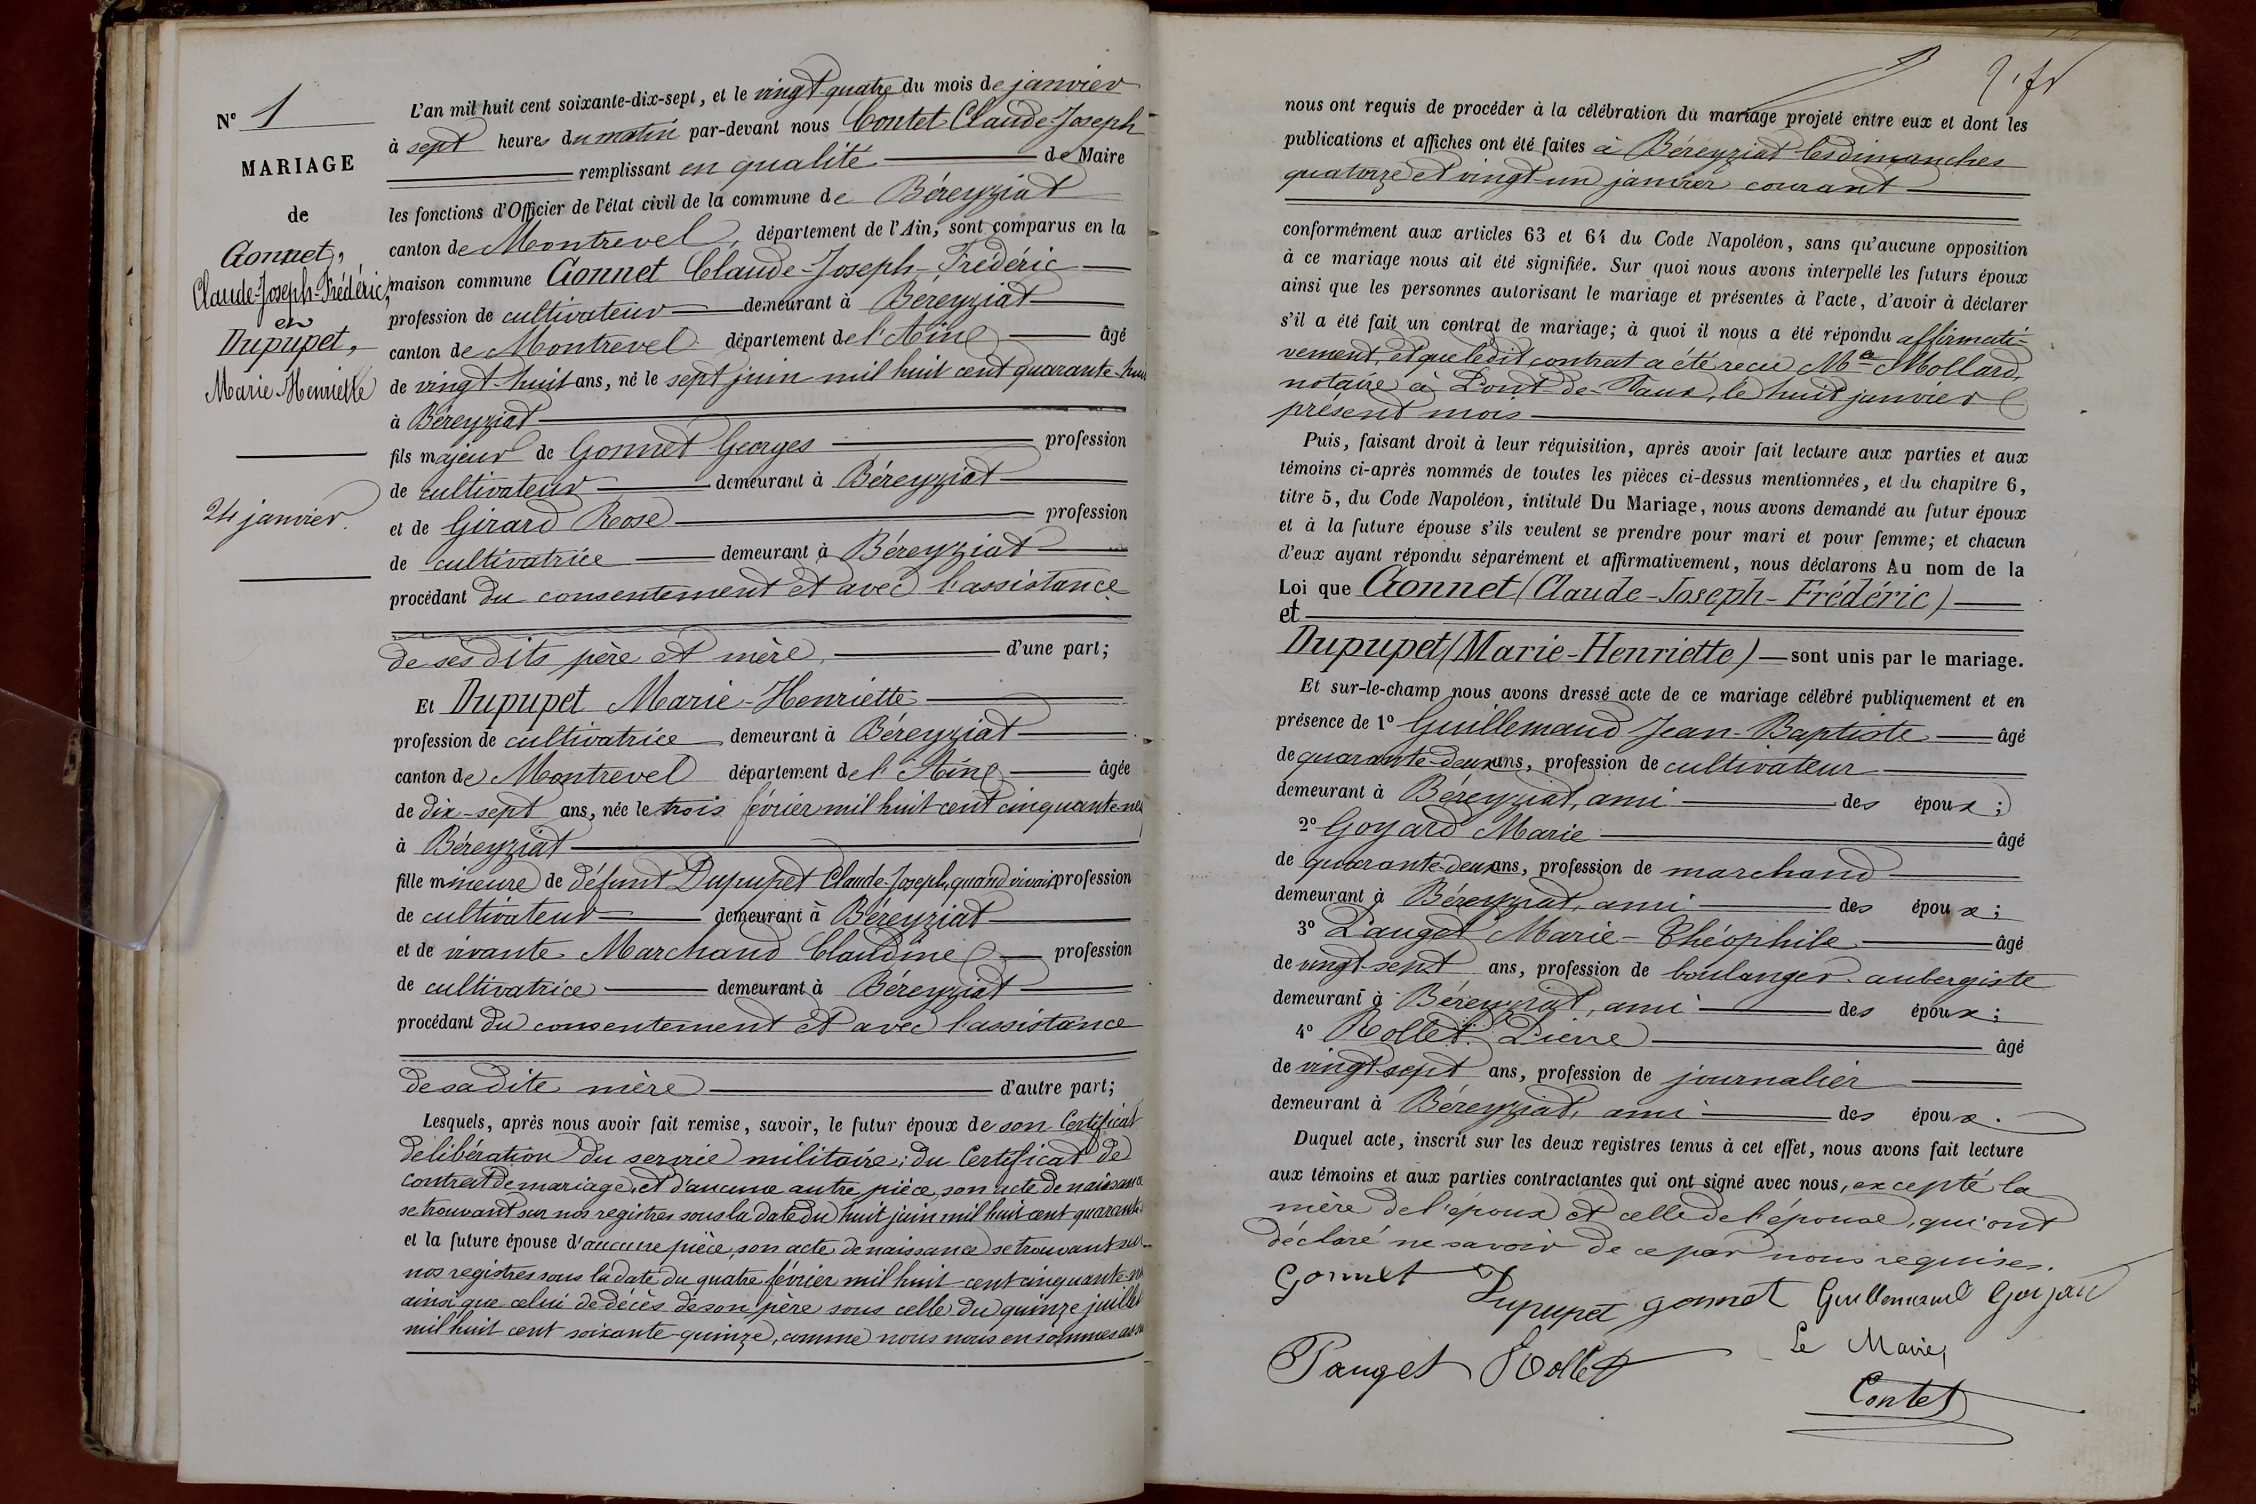 N° 1
MARIAGE
de
Gonnet,
Claude-Joseph-Frédéric,
et
Dupupet,
Marie-Henriette
24 janvier.
L'an mil huit cent soixante-dix-sept, et le vingt-quatre du mois de janvier
à sept heures du matin par-devant nous Contet Claude-Joseph
remplissant en qualité de Maire
les fonctions d'Officier de l'état civil de la commune de Béreyziat
canton de Montrevel, département de l'Ain, sont comparus en la
maison commune Gonnet Claude-Joseph-Frédéric
profession de cultivateur demeurant à Béreyziat
canton de Montrevel département de l'Ain âgé
de vingt-huit ans, né le sept juin mil huit cent quarante-huit
à Béreyziat
fils majeur de Gonnet Georges profession
de cultivateur demeurant à Béreyziat
et de Girard Rose profession
de cultivatrice demeurant à Béreyziat
procédant du consentement et avec l'assistance
de ses dits père et mère, d'une part;
Et Dupupet Marie-Henriette
profession de cultivatrice demeurant à Béreyziat
canton de Montrevel département de l'Ain âgée
de dix-sept ans, née le trois février mil huit cent cinquante-neuf
à Béreyziat
fille mineure de défunt Dupupet Claude-Joseph, quand vivait profession
de cultivateur demeurant à Béreyziat
et de vivante Marchand Claudine profession
de cultivatrice demeurant à Béreyziat
procédant du consentement et avec l'assistance
de sa dite mère d'autre part;
Lesquels, après nous avoir fait remise, savoir, le futur époux de son Certificat
de libération du servie militaire; du Certificat de
contrat de mariage, et d'aucune autre pièce, son acte de naissance
se trouvant sur nos registres sous la date du huit juin mil huit cent quarante
et la future épouse d'aucune pièce, son acte de naissance se trouvant sur
nos registres sous la date du quatre février mil huit cent cinquante
ainsi que celui de décès de son père sous celle du quinze juillet
mil huit cent soixante-quinze, comme nous nous en sommes
nous ont requis de procéder à la célébration du mariage projeté entre eux et dont les
publications et affiches ont été faites à Béreyziat les dimanches
quatorze et vingt-un janvier courant
conformément aux articles 63 et 64 du Code Napoléon, sans qu'aucune opposition
à ce mariage nous ait été signifiée. Sur quoi nous avons interpellé les futurs époux
ainsi que les personnes autorisant le mariage et présentes à l'acte, d'avoir à déclarer
s'il a été fait un contrat de mariage; à quoi il nous a été répondu affirmati-
vement, et que ledit contrat a été recu Me Mollard,
notaire à Pont-de-Vaux, le huit janvier
présent mois
Puis, faisant droit à leur réquisition, après avoir fait lecture aux parties et aux
témoins ci-après nommés de toutes les pièces ci-dessus mentionnées, et du chapitre 6,
titre 5, du Code Napoléon, intitulé Du Mariage, nous avons demandé au futur époux
et à la future épouse s'ils veulent se prendre pour mari et pour femme; et chacun
d'eux ayant répondu séparément et affirmativement, nous déclarons Au nom de la
Loi que Gonnet (Claude-Joseph-Frédéric)
et
Dupupet (Marie-Henriette) sont unis par le mariage.
Et sur-le-champ nous avons dressé acte de ce mariage célébré publiquement et en
présence de 1° Guillemaud Jean-Baptiste âgé
de quarante-deux ans, profession de cultivateur
demeurant à Béreyziat, ami des époux;
2° Goyard Marie âgé
de quarante-deux ans, profession de marchand
demeurant à Béreyziat, ami des époux;
3° Pauget Marie-Théophile âgé
de vingt-sept ans, profession de boulanger-aubergiste
demeurant à Béreyziat, ami des époux;
4° Rollet Pierre âgé
de vingt-sept ans, profession de journalier
demeurant à Béreyziat, ami des époux.
Duquel acte, inscrit sur les deux registres tenus à cet effet, nous avons fait lecture
aux témoins et aux parties contractantes qui ont signé avec nous, excepté la
mère de l'époux et celle de l'épouse, qui ont
déclaré ne savoir de ce par nous requises.
Gonnet Dupupet gonnet Guillemaud Goyard
Pauget Rollet
Le Maire,
Contet